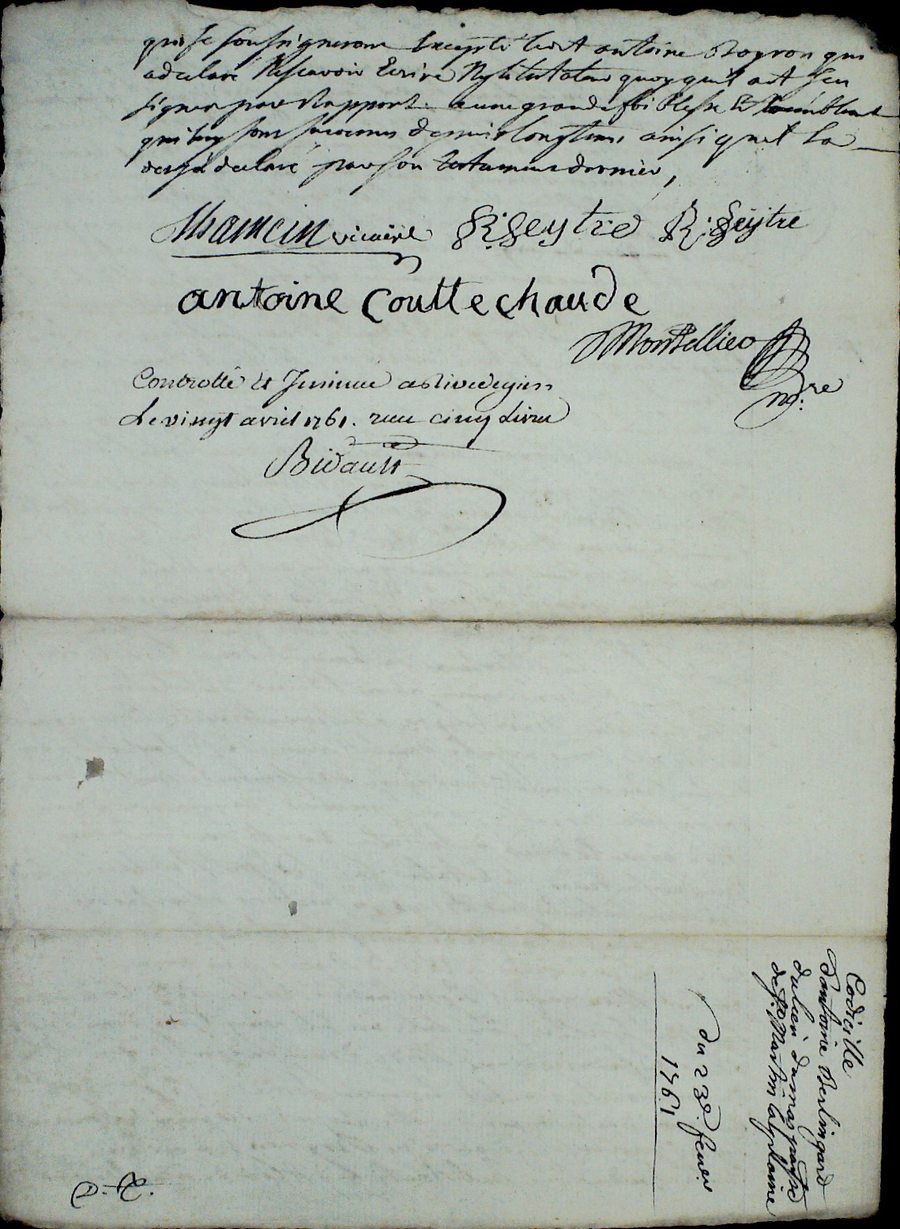 qui se soussigneront Excepté led.t antoine Boyron qui
a declaré Nescavoir Ecrire Ny le testateur quoy quil aet sceu
signer par Rapport a une grande foiblesse Et tremblent
qui luy sont survenus depuis longtems ainsi quil la
desja declaré par son testament dernier,
Mamein vicaire R: Seytre R: Seytre
antoine Couttechaude
Montellier
n.re
Controllé Et Insinué a st
Le vingt avril 1761. recu cinq Livres
Bidault
Codicille
D'antoine Berlingard
du lieu du mas parsse
de st Martin la plaine
du 23e. fevrier
1761